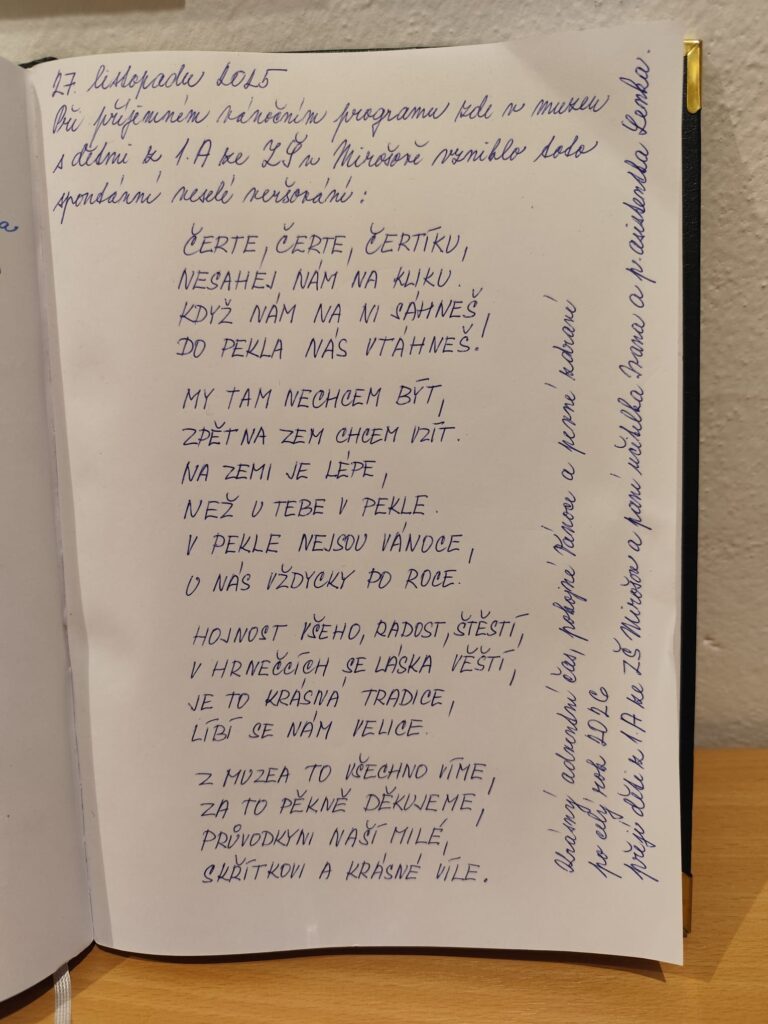 27. listopadu 2025
Při příjemném vánočním programu zde v muzeu
s dětmi z 1.A ze ZŠ v Mirošově vzniklo toto
spontánní veselé veršování:
ČERTE, ČERTE, ČERTÍKU,
NESAHEJ NÁM NA KLIKU.
KDYŽ NÁM NA NI SÁHNEŠ,
DO PEKLA NÁS VTÁHNEŠ.
MY TAM NECHCEM BÝT,
ZPĚT NA ZEM CHCEM VZÍT.
NA ZEMI JE LÉPE,
NEŽ U TEBE V PEKLE.
V PEKLE NEJSOU VÁNOCE,
U NÁS VŽDYCKY PO ROCE.
HOJNOST VŠEHO, RADOST, ŠTĚSTÍ,
V HRNEČCÍCH SE LÁSKA VĚŠTÍ,
JE TO KRÁSNÁ TRADICE,
LÍBÍ SE NÁM VELICE.
Z MUZEA TO VŠECHNO VÍME,
ZA TO PĚKNĚ DĚKUJEME,
PRŮVODKYNI NAŠÍ MILÉ,
SKŘÍTKOVI A KRÁSNÉ VÍLE.
Krásný adventní čas, pokojné Vánoce a pevné zdraví
po celý rok 2026
přejí děti z 1.A ze ZŠ Mirošov a paní učitelka Ivana a p. asistentka Lenka.